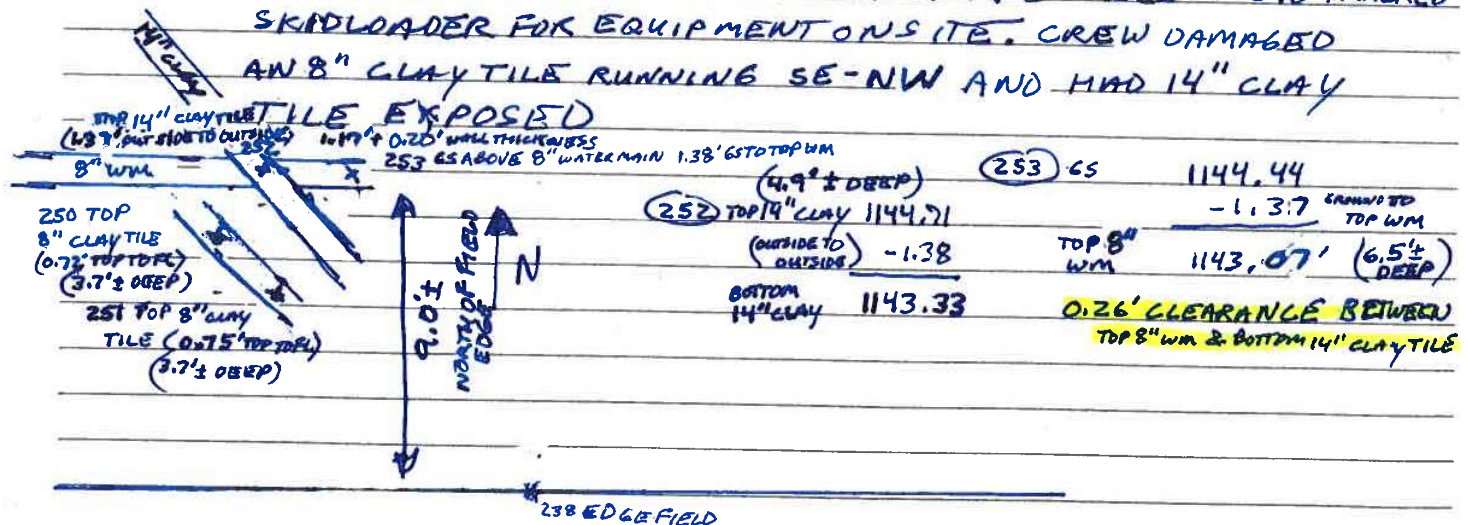 SKIDLOADER FOR EQUIPMENT ONSITE. CREW DAMAGED
AN 8" CLAY TILE RUNNING SE-NW AND HAD 14" CLAY
TILE EXPOSED
14" CLAY
TOP 14" CLAY TILE
(1.37' OUTSIDE TO OUTSIDE) 1.17' + 0.20' WALL THICKNESS
252
253 GS ABOVE 8" WATERMAIN 1.38' GS TO TOP WM
8" WM
250 TOP
8" CLAY TILE
(0.72' TOP TO FL)
(3.7'± DEEP)
251 TOP 8" CLAY
TILE (0.75' TOP TO FL)
(3.7'± DEEP)
9.0'±
NORTH OF FIELD
EDGE
N
238 EDGE FIELD
(4.9'± DEEP)
252 TOP 14" CLAY 1144.71
(OUTSIDE TO
OUTSIDE) -1.38
BOTTOM
14" CLAY 1143.33
253 GS 1144.44
-1.37 GROUND TO
TOP WM
TOP 8"
WM 1143.07' (6.5'±
DEEP)
0.26' CLEARANCE BETWEEN
TOP 8" WM & BOTTOM 14" CLAY TILE